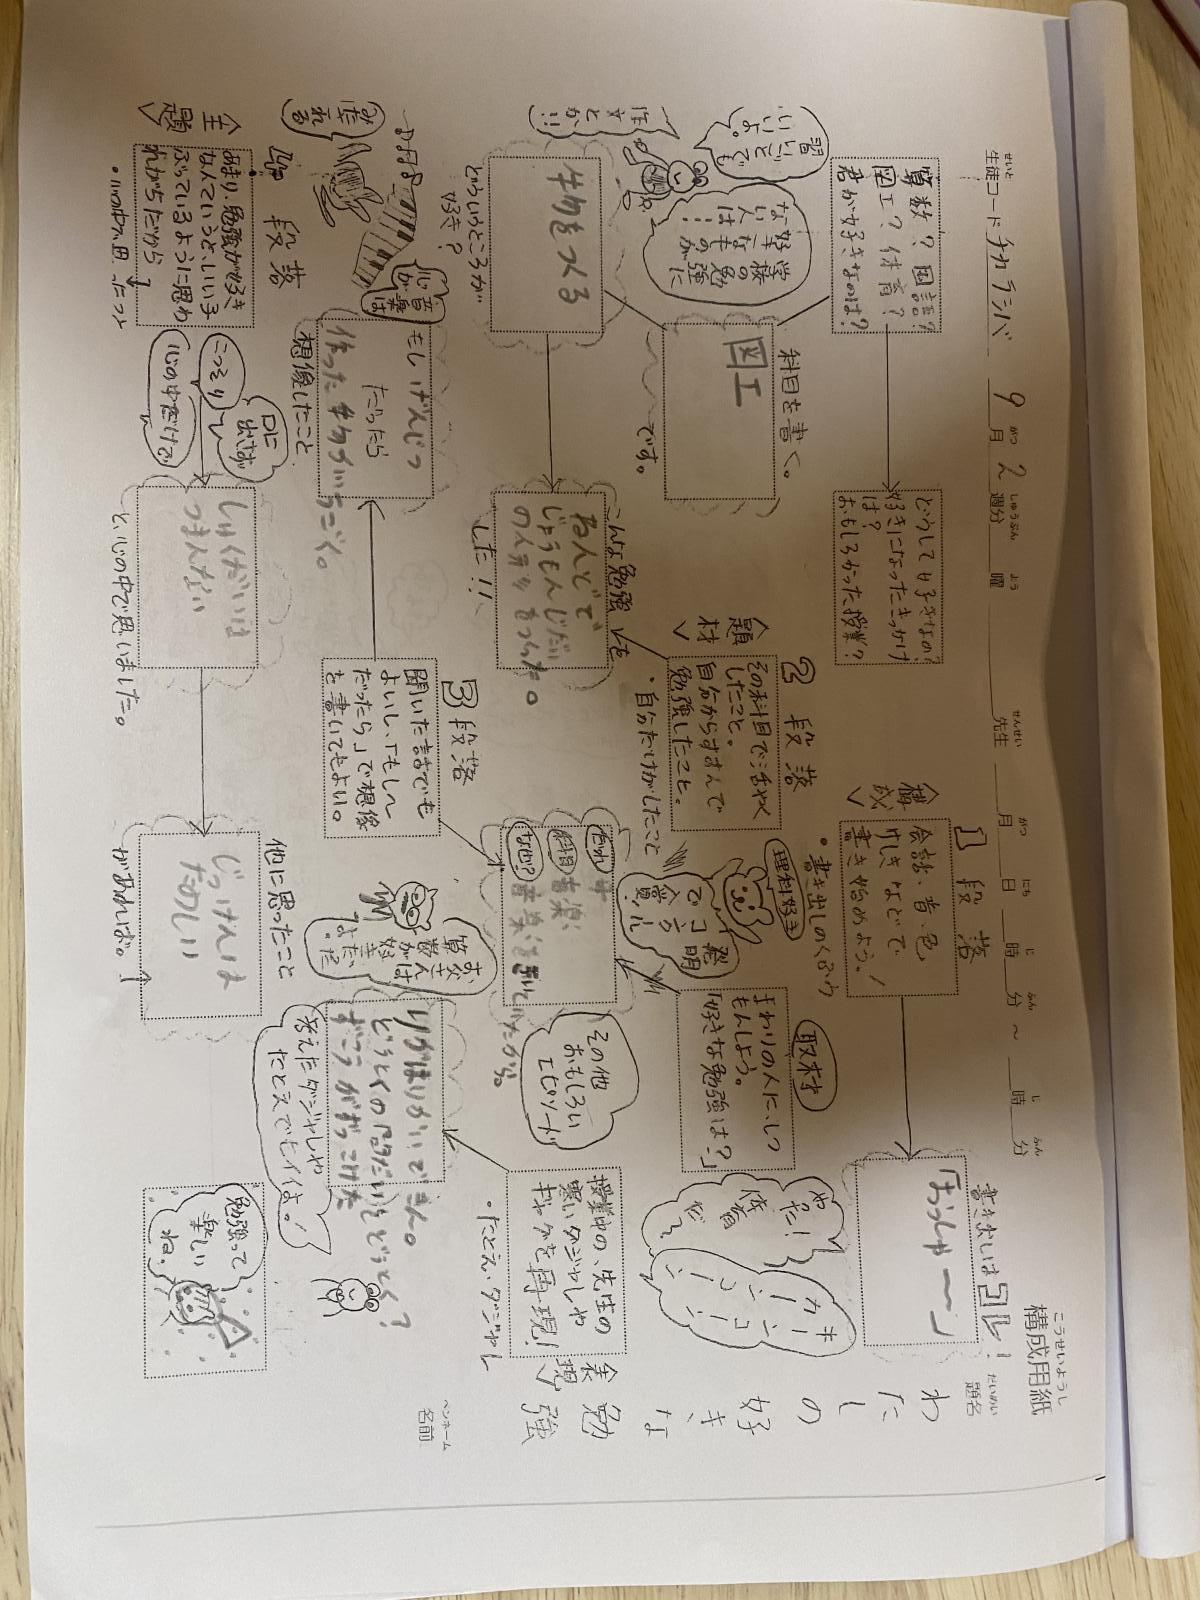 構成用紙
こうせいようし
題名
だいめい
わたしの好きな勉強
ペンネーム
名前
生徒コード チカラシバ 9月2週分 曜 先生 月 日 時 分 ~ 時 分
せいと がつ しゅうぶん よう せんせい がつ にち じ ふん じ ふん
書き出しはコレ!
「よっしゃーー」
<構成>
1段落
会話・音・色
けしきなどで
書き始めよう!
・書き出しのくふう
どうして好きなの?
好きになったきっかけ
は?
おもしろかった授業?
算数?国語?
図工?体育?
君が好きなのは?
科目を書く。
図工
です。
学校の勉強に
好きなものが
ない人は…
習いごとでも
いいよ。
作文
とか!!
やった!
体育
だ〜
キーンコーン
カーンコーン
取材
まわりの人に、しつ
もんしよう。
「好きな勉強は?」
理科好き
発明
2段落
<題材>
その科目で活やく
したこと。
自分からすすんで
勉強したこと。
・自分だけがしたこと
こんな勉強を
ねんどで
じょうもんじだい
の人形をつくりま
した!!
物をつくる
どういうところが
好き?
<表現>
授業中の、先生の
寒いダジャレや
ギャグを再現!
・たとえ・ダジャレ
その他
おもしろい
エピソード
だれ
科目 音楽
なぜ?
お父さんは
算数が
好き
だよ。
りかはりかいできん。
考えたダジャレや
たとえでもイイよ!
3段落
聞いた話でも
よいし、「もし〜
だったら」で想像
を書いてもよい。
もしげんじつ
だったら
作った物がうごく。
想像したこと
音楽は
心が
みたされる
他に思ったこと
じっけんは
たのしい
があれば。
しゅくだいは
つまんない
と、心の中で思いました。
口に
出さず
こっそり
心の中だけで
4段落
<主題>
あまり、勉強が好き
なんていうと、いい子
ぶっているように思わ
れがちだから
・心の中で思ったこと
勉強って
楽しい
ね。